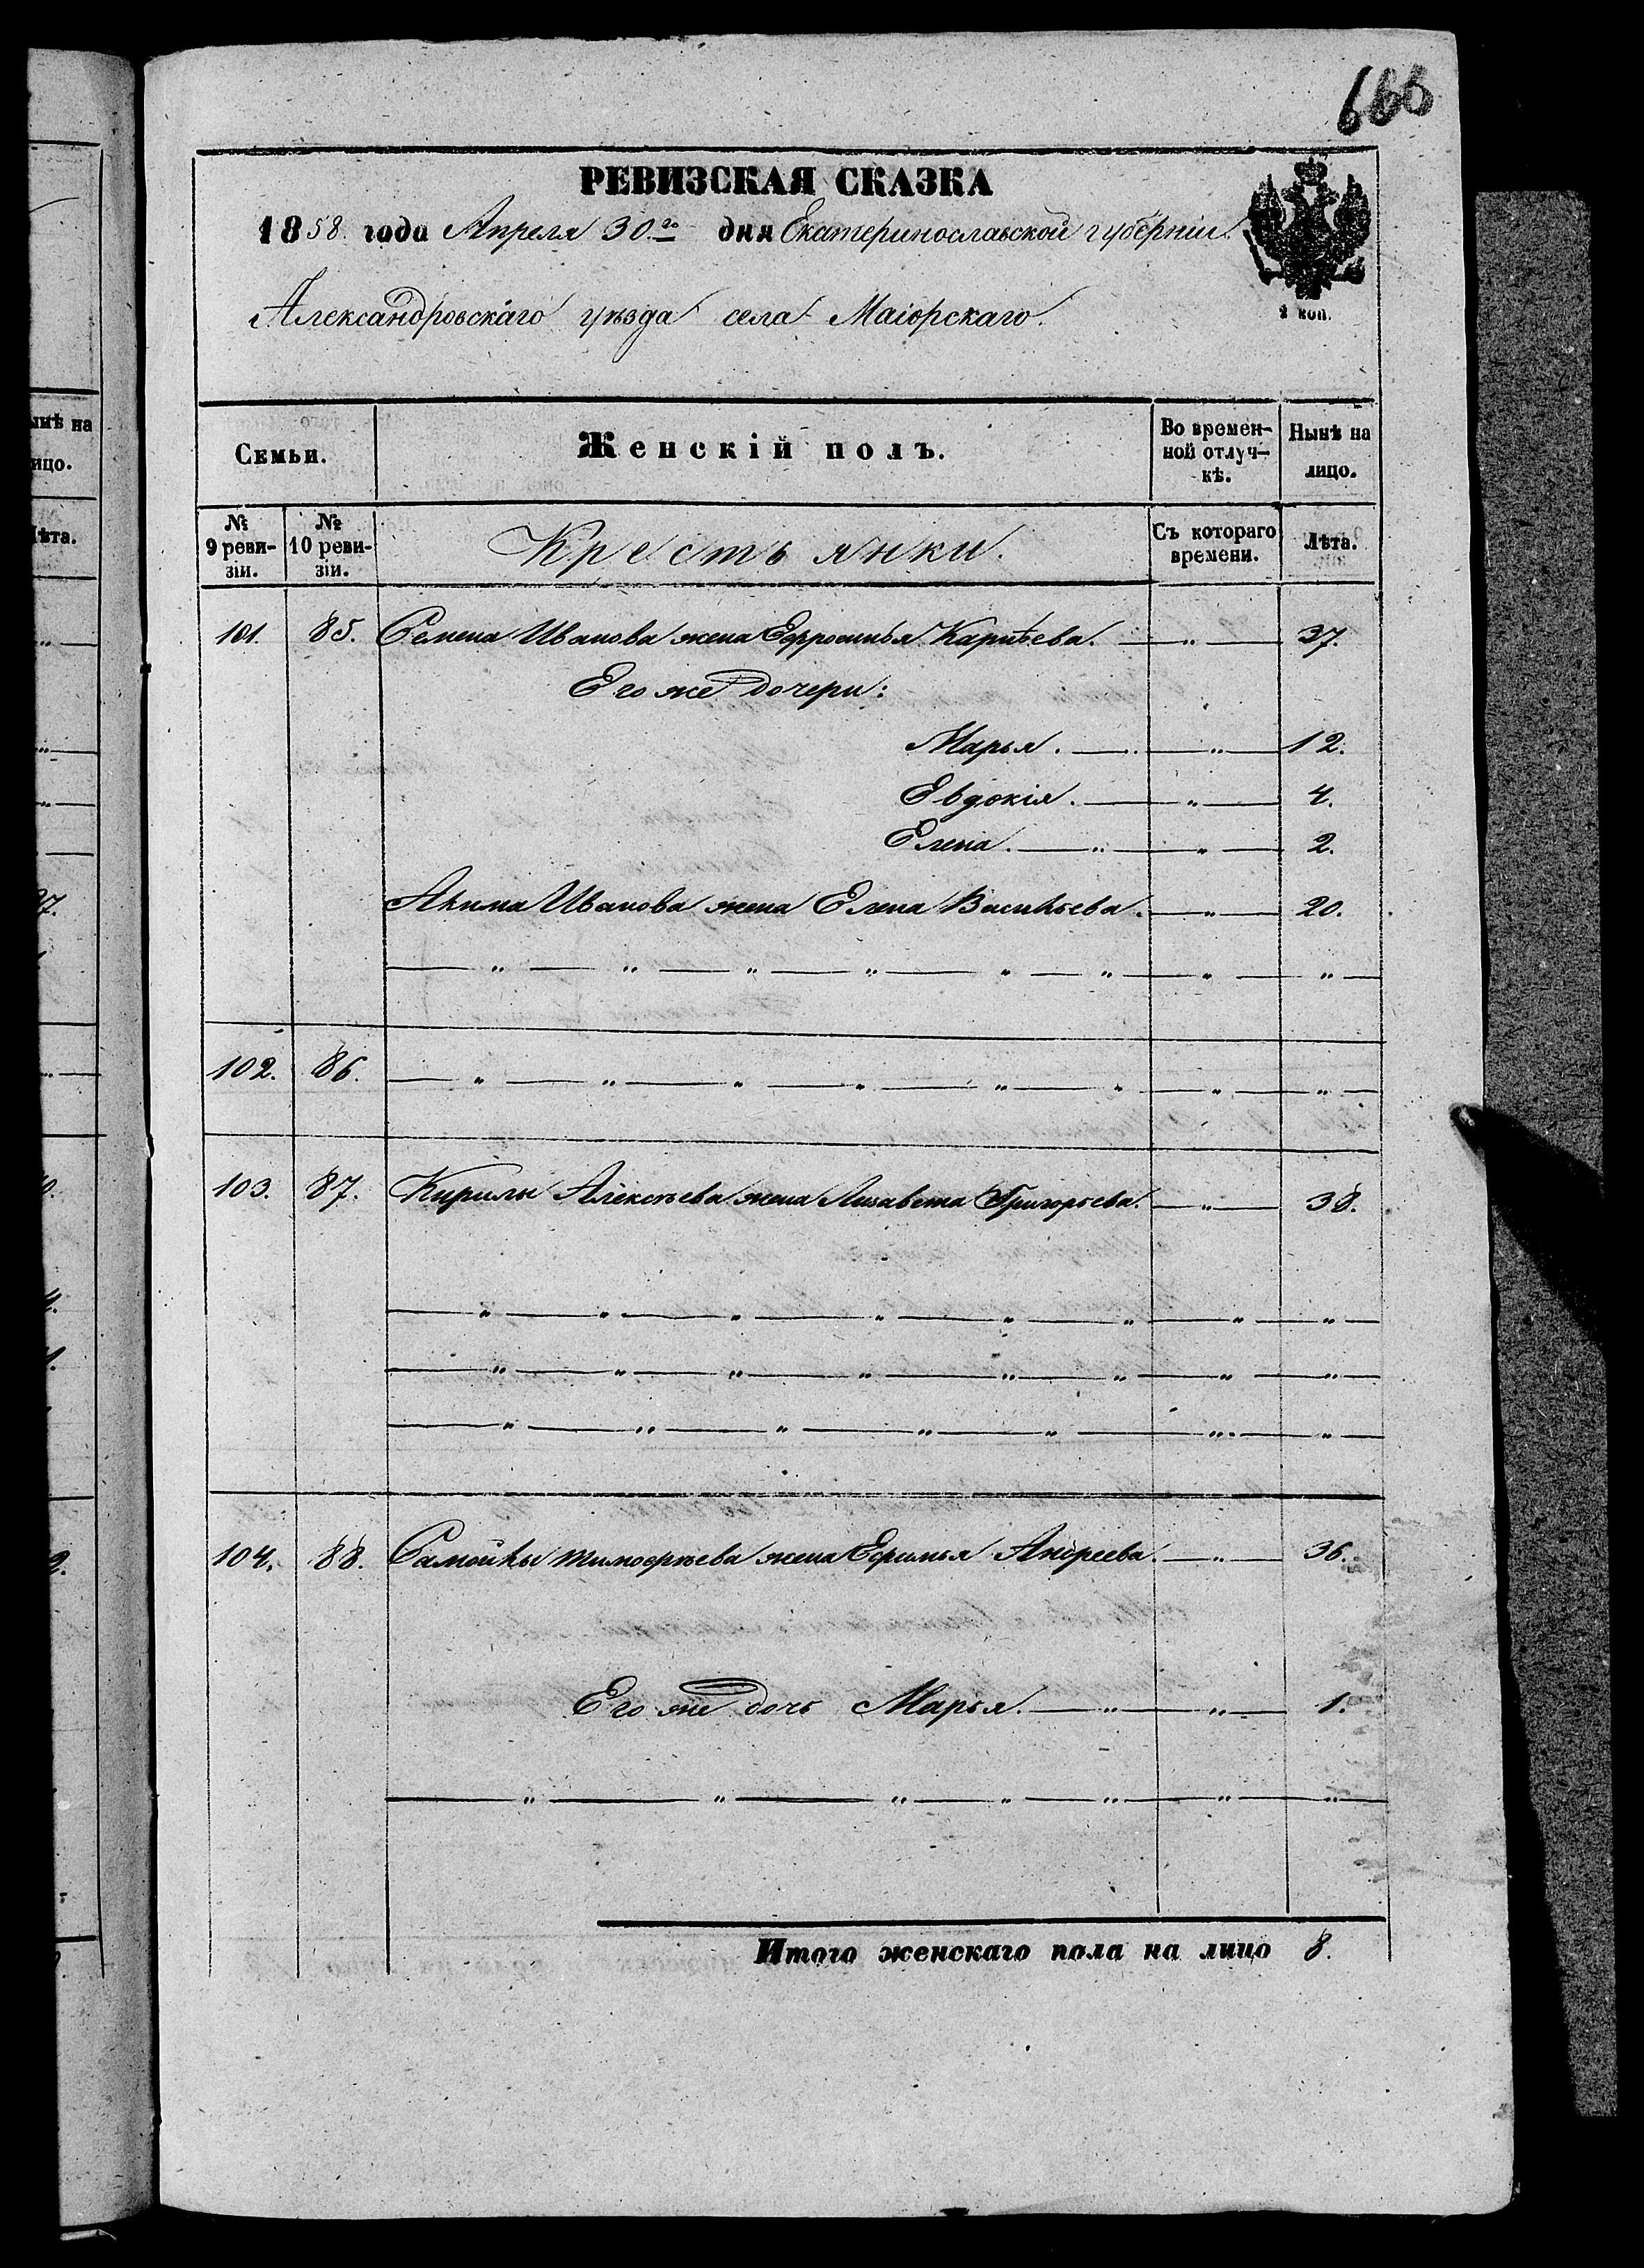 666
РЕВИЗСКАЯ СКАЗКА
1858. года Апреля 30го дня Екатеринославской губерніи
Александровскаго уѣзда села Маіорскаго.
2 коп.
Семьи.
Женскій полъ.
Во времен-
ной отлуч-
кѣ.
Нынѣ на
лицо.
№
9 реви-
зіи.
№
10 реви-
зіи.
Крестьянки.
Съ котораго
времени.
Лѣта.
101. 85. Семена Иванова жена Ефросинья Карпѣева. — „ — 37.
Его же дочери:
Марья. — „ — 12.
Евдокія. — „ — 4.
Елена. — „ — „ — 2.
Акима Иванова жена Елена Васильева. — „ — 20.
— „ — „ — „ — „ — „ — „ — „ — „ —
102. 86. — „ — „ — „ — „ — „ — „ — „ — „ —
103. 87. Кирилы Алексѣева жена Лизавета Григорьева. — „ — 38.
— „ — „ — „ — „ — „ — „ — „ — „ —
— „ — „ — „ — „ — „ — „ — „ — „ —
— „ — „ — „ — „ — „ — „ — „ —
104. 88. Самойлы Тимофѣева жена Ефимья Андреева. — „ — 36.
Его же дочь Марья. — „ — „ — 1.
— „ — „ — „ — „ — „ — „ — „ —
Итого женскаго пола на лицо 8.